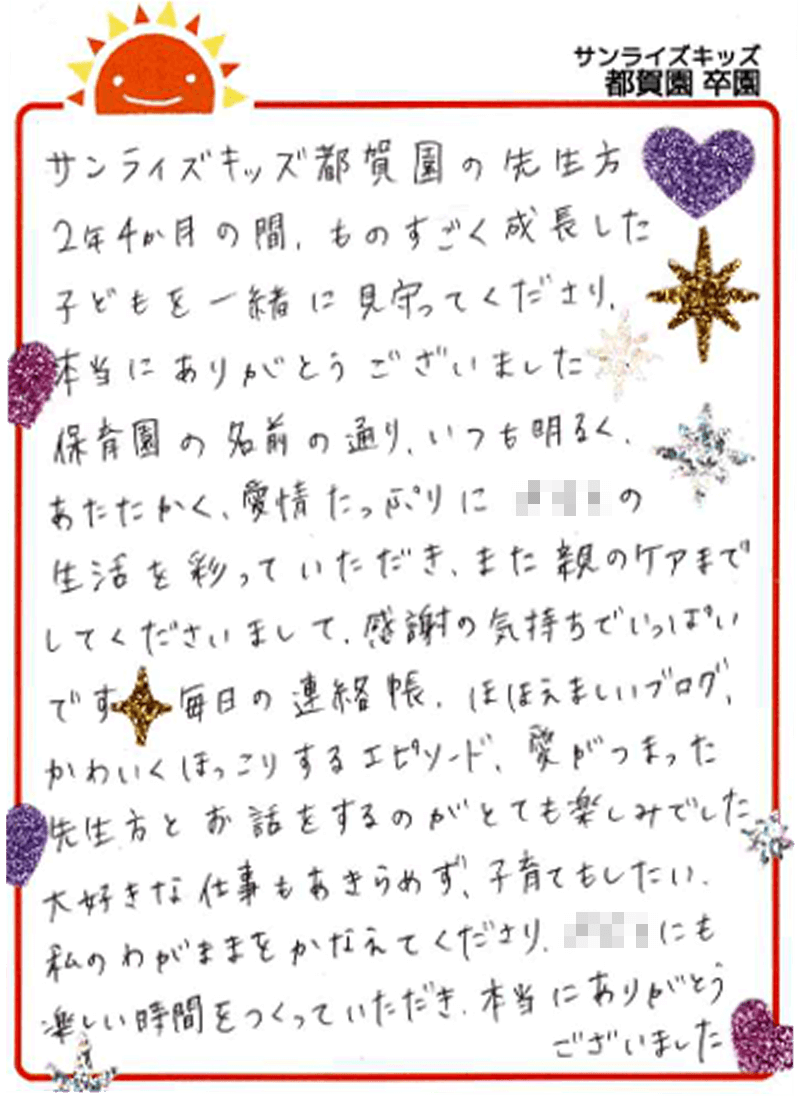 サンライズキッズ
都賀園 卒園
サンライズキッズ都賀園の先生方
2年4か月の間、ものすごく成長した
子どもを一緒に見守ってくださり、
本当にありがとうございました
保育園の名前の通り、いつも明るく、
あたたかく、愛情たっぷりに の
生活を彩っていただき、また親のケアまで
してくださいまして、感謝の気持ちでいっぱい
です 毎日の連絡帳、ほほえましいブログ、
かわいくほっこりするエピソード、愛がつまった
先生方とお話をするのがとても楽しみでした
大好きな仕事もあきらめず、子育てもしたい、
私のわがままをかなえてくださり、 にも
楽しい時間をつくっていただき、本当にありがとう
ございました